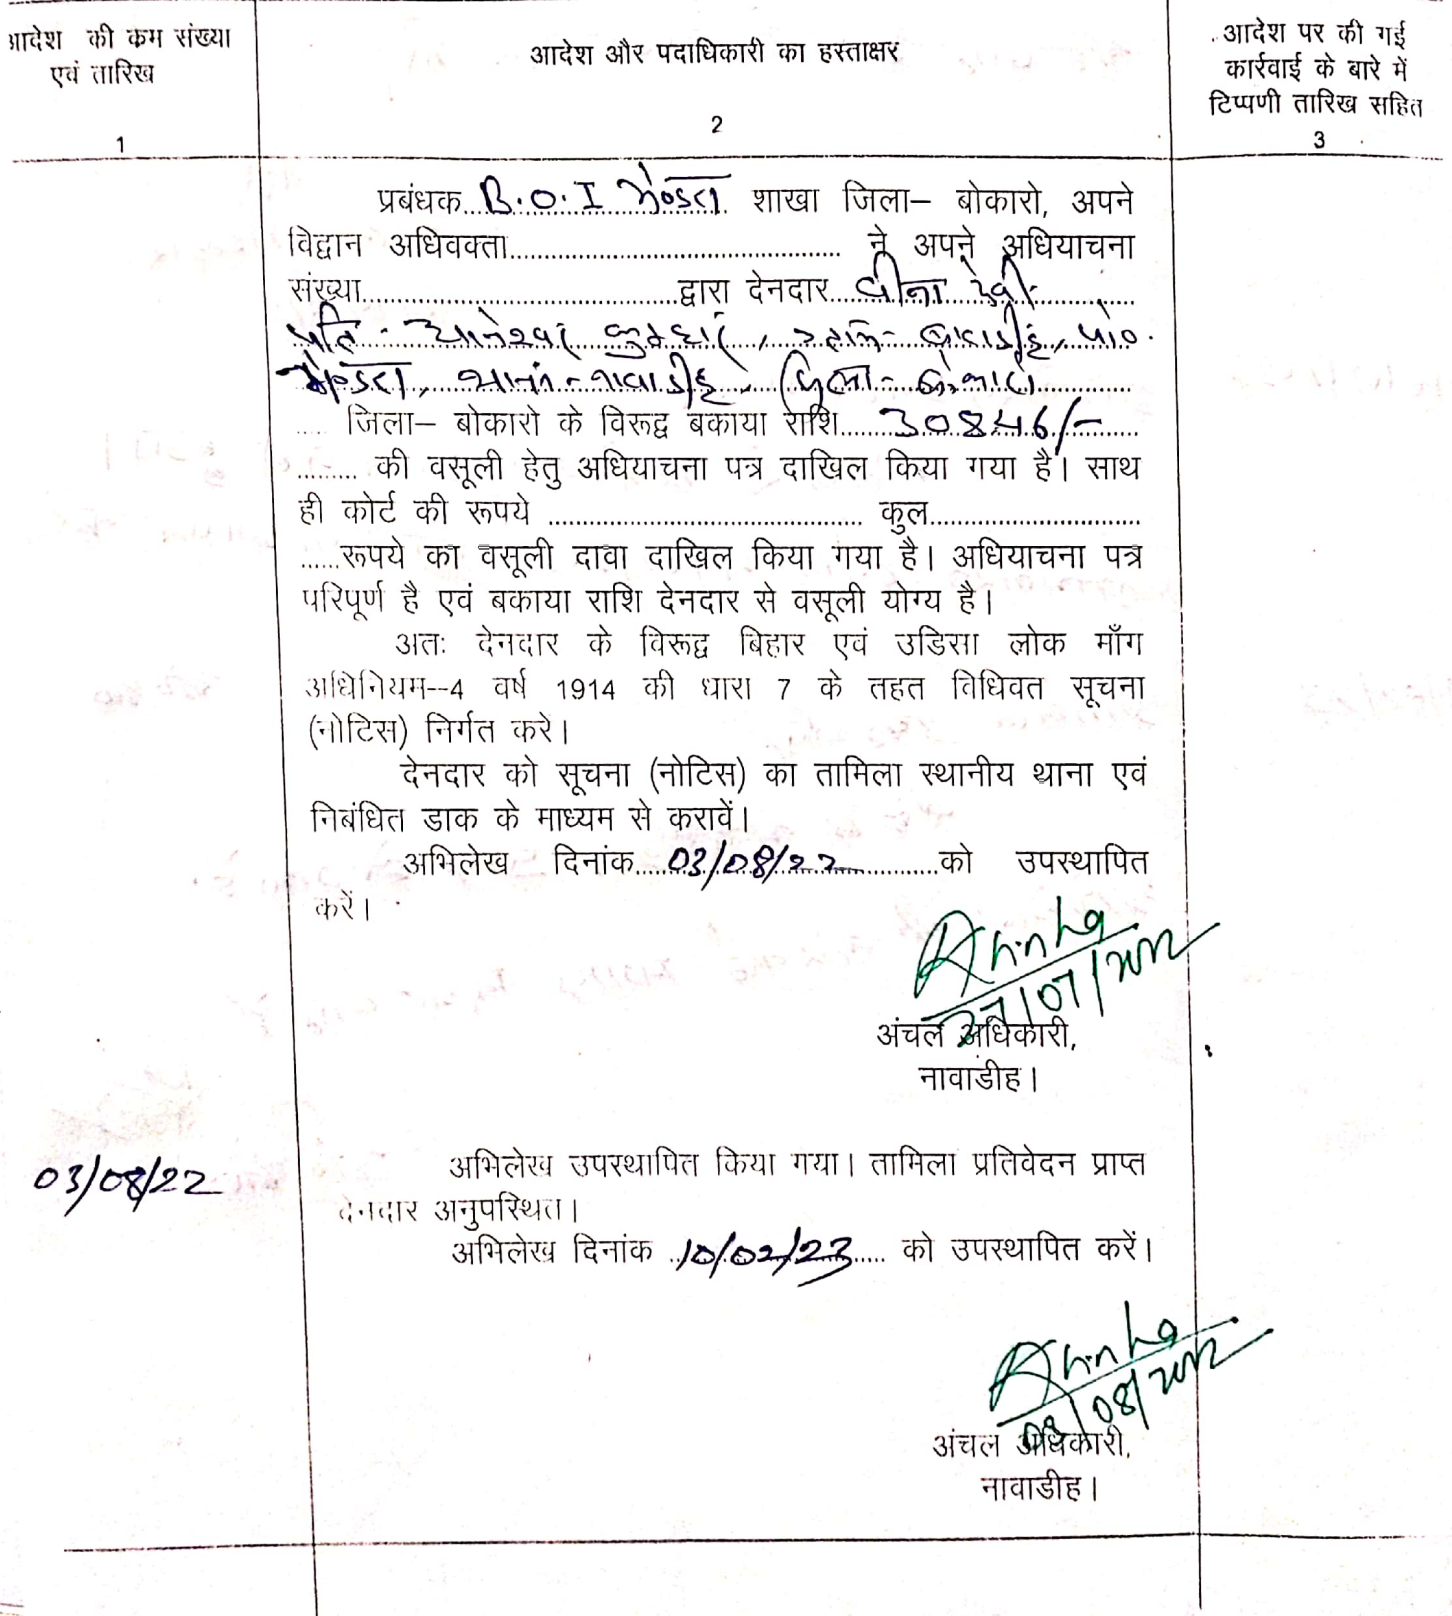 आदेश की कम संख्या
एवं तारिख
1
आदेश और पदाधिकारी का हस्ताक्षर
2
आदेश पर की गई
कार्रवाई के बारे में
टिप्पणी तारिख सहित
3
प्रबंधक B.O.I शाखा जिला– बोकारो, अपने
विद्वान अधिवक्ता.................... ने अपने अधियाचना
संख्या....................द्वारा देनदार वीना देवी
पति - कुम्हार, पो०
थाना-नावाडीह, जिला- बोकारो
जिला– बोकारो के विरूद्व बकाया राशि 30846/-
की वसूली हेतु अधियाचना पत्र दाखिल किया गया है। साथ
ही कोर्ट की रूपये .................... कुल....................
......रूपये का वसूली दावा दाखिल किया गया है। अधियाचना पत्र
परिपूर्ण है एवं बकाया राशि देनदार से वसूली योग्य है।
अतः देनदार के विरूद्व बिहार एवं उडिसा लोक माँग
अधिनियम--4 वर्ष 1914 की धारा 7 के तहत विधिवत सूचना
(नोटिस) निर्गत करे।
देनदार को सूचना (नोटिस) का तामिला स्थानीय थाना एवं
निबंधित डाक के माध्यम से करावें।
अभिलेख दिनांक 03/08/22 को उपस्थापित
करें।
27/07/2022
अंचल अधिकारी,
नावाडीह।
03/08/22
अभिलेख उपस्थापित किया गया। तामिला प्रतिवेदन प्राप्त
देनदार अनुपस्थित।
अभिलेख दिनांक 10/02/23 को उपस्थापित करें।
03/08/2022
अंचल अधिकारी,
नावाडीह।